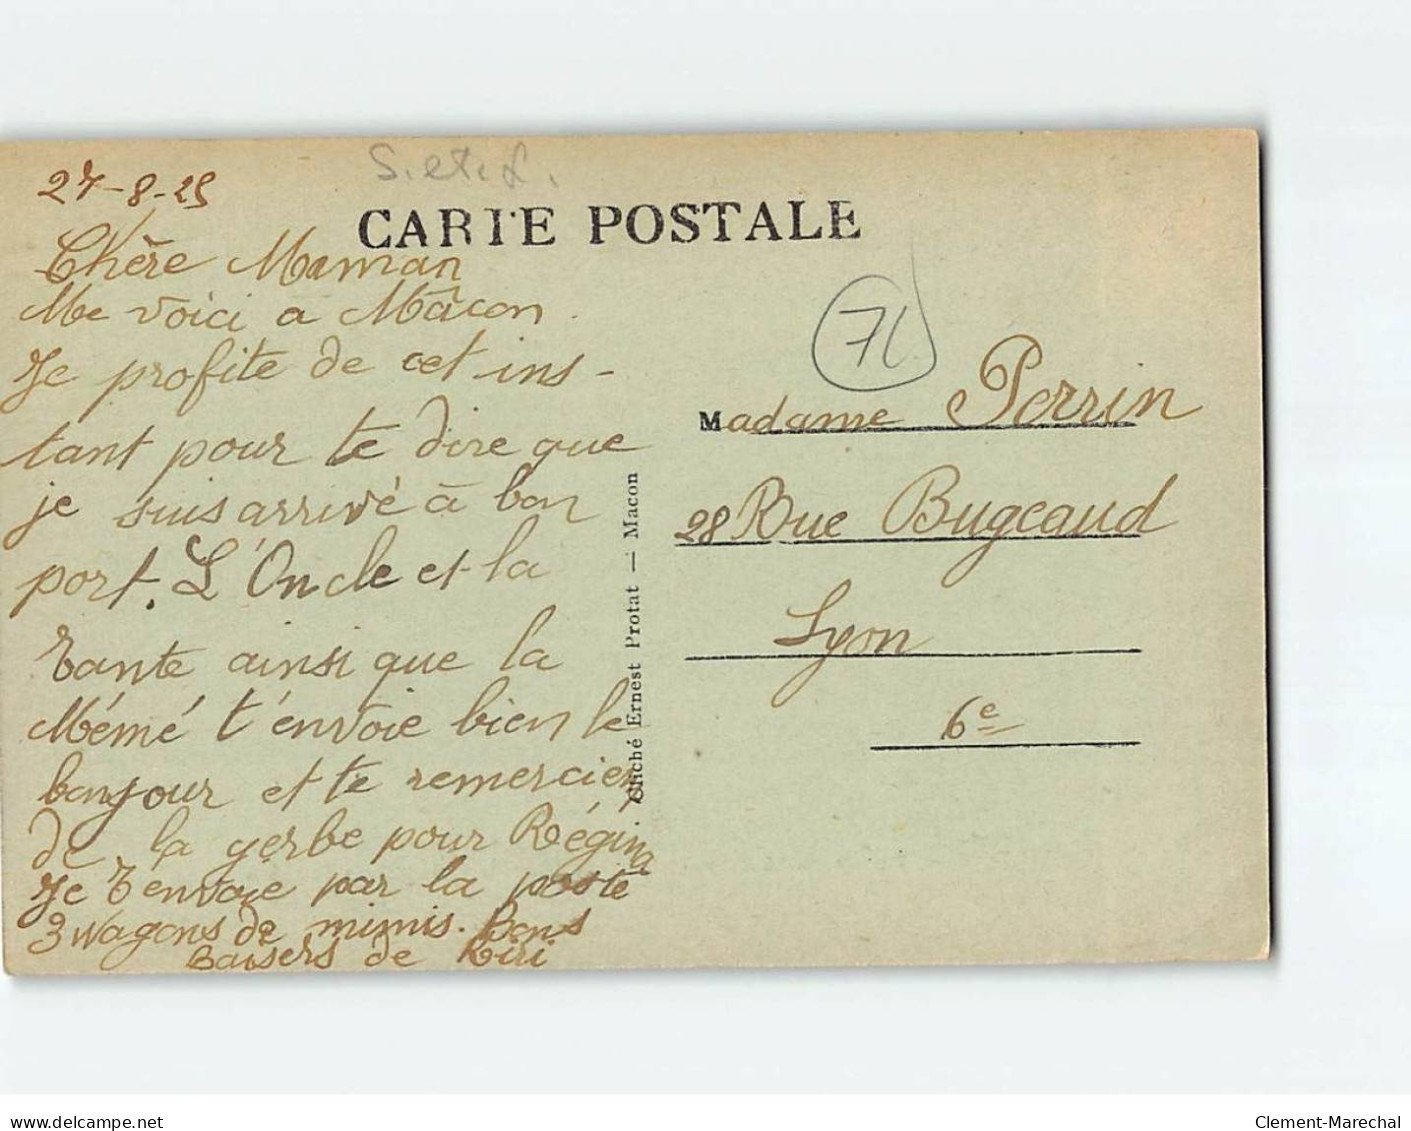 27-8-25
S. et. L.
CARTE POSTALE
Chère Maman
Me voici a Mâcon.
Je profite de cet ins-
tant pour te dire que
je suis arrivé à bon
port. L'Oncle et la
Tante ainsi que la
Mémé t'envoie bien le
bonjour et te remercier
de la gerbe pour Régina
Je t'envoie par la poste
3 wagons de mimis. Bons
Baisers de Riri
Cliché Ernest Protat — Macon
71
Madame Perrin
28 Rue Bugeaud
Lyon
6e
delcampe.net
Clement-Marechal